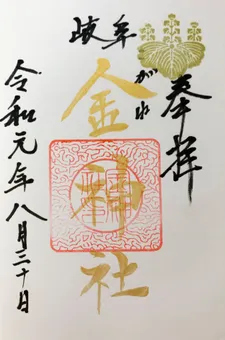 奉拝
岐阜
金神社
こがね
令和元年八月三十日